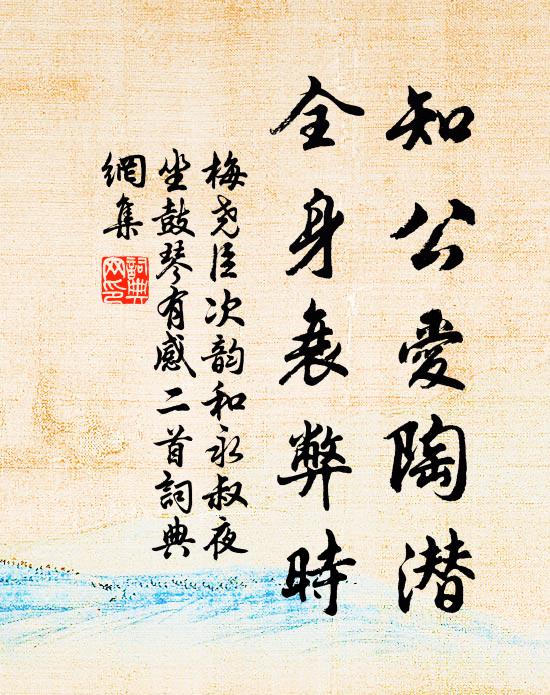 知公愛陶潜
全身衰弊時
梅尧臣次韵和永叔夜
坐鼓琴有感二首詞典
網集
詞典
网印